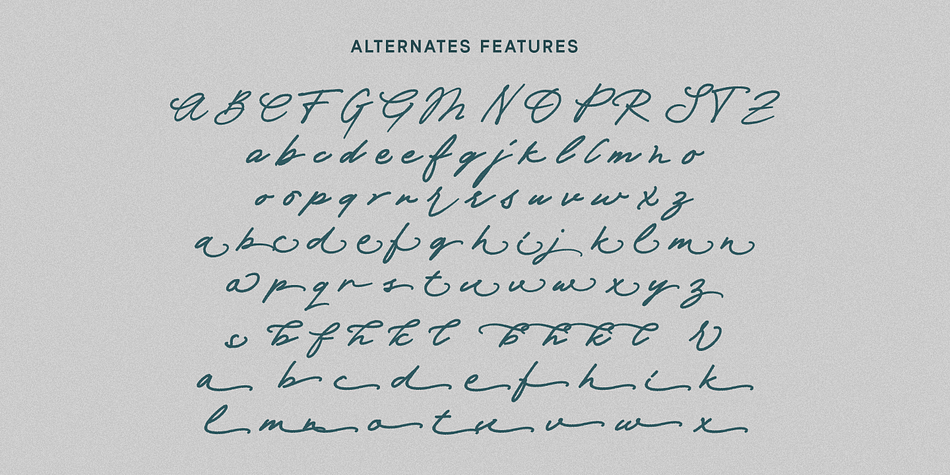 ALTERNATES FEATURES
A B C F G G M N O P R S T Z
a b c d e e f g j k l l m n o
o o p q r n r r s u v w x z
a b c d e f g h i j k l m n
o p q r s t u v w x y z
s b f h k t b h k t r
a b c d e f h i k
l m n o t u v w x